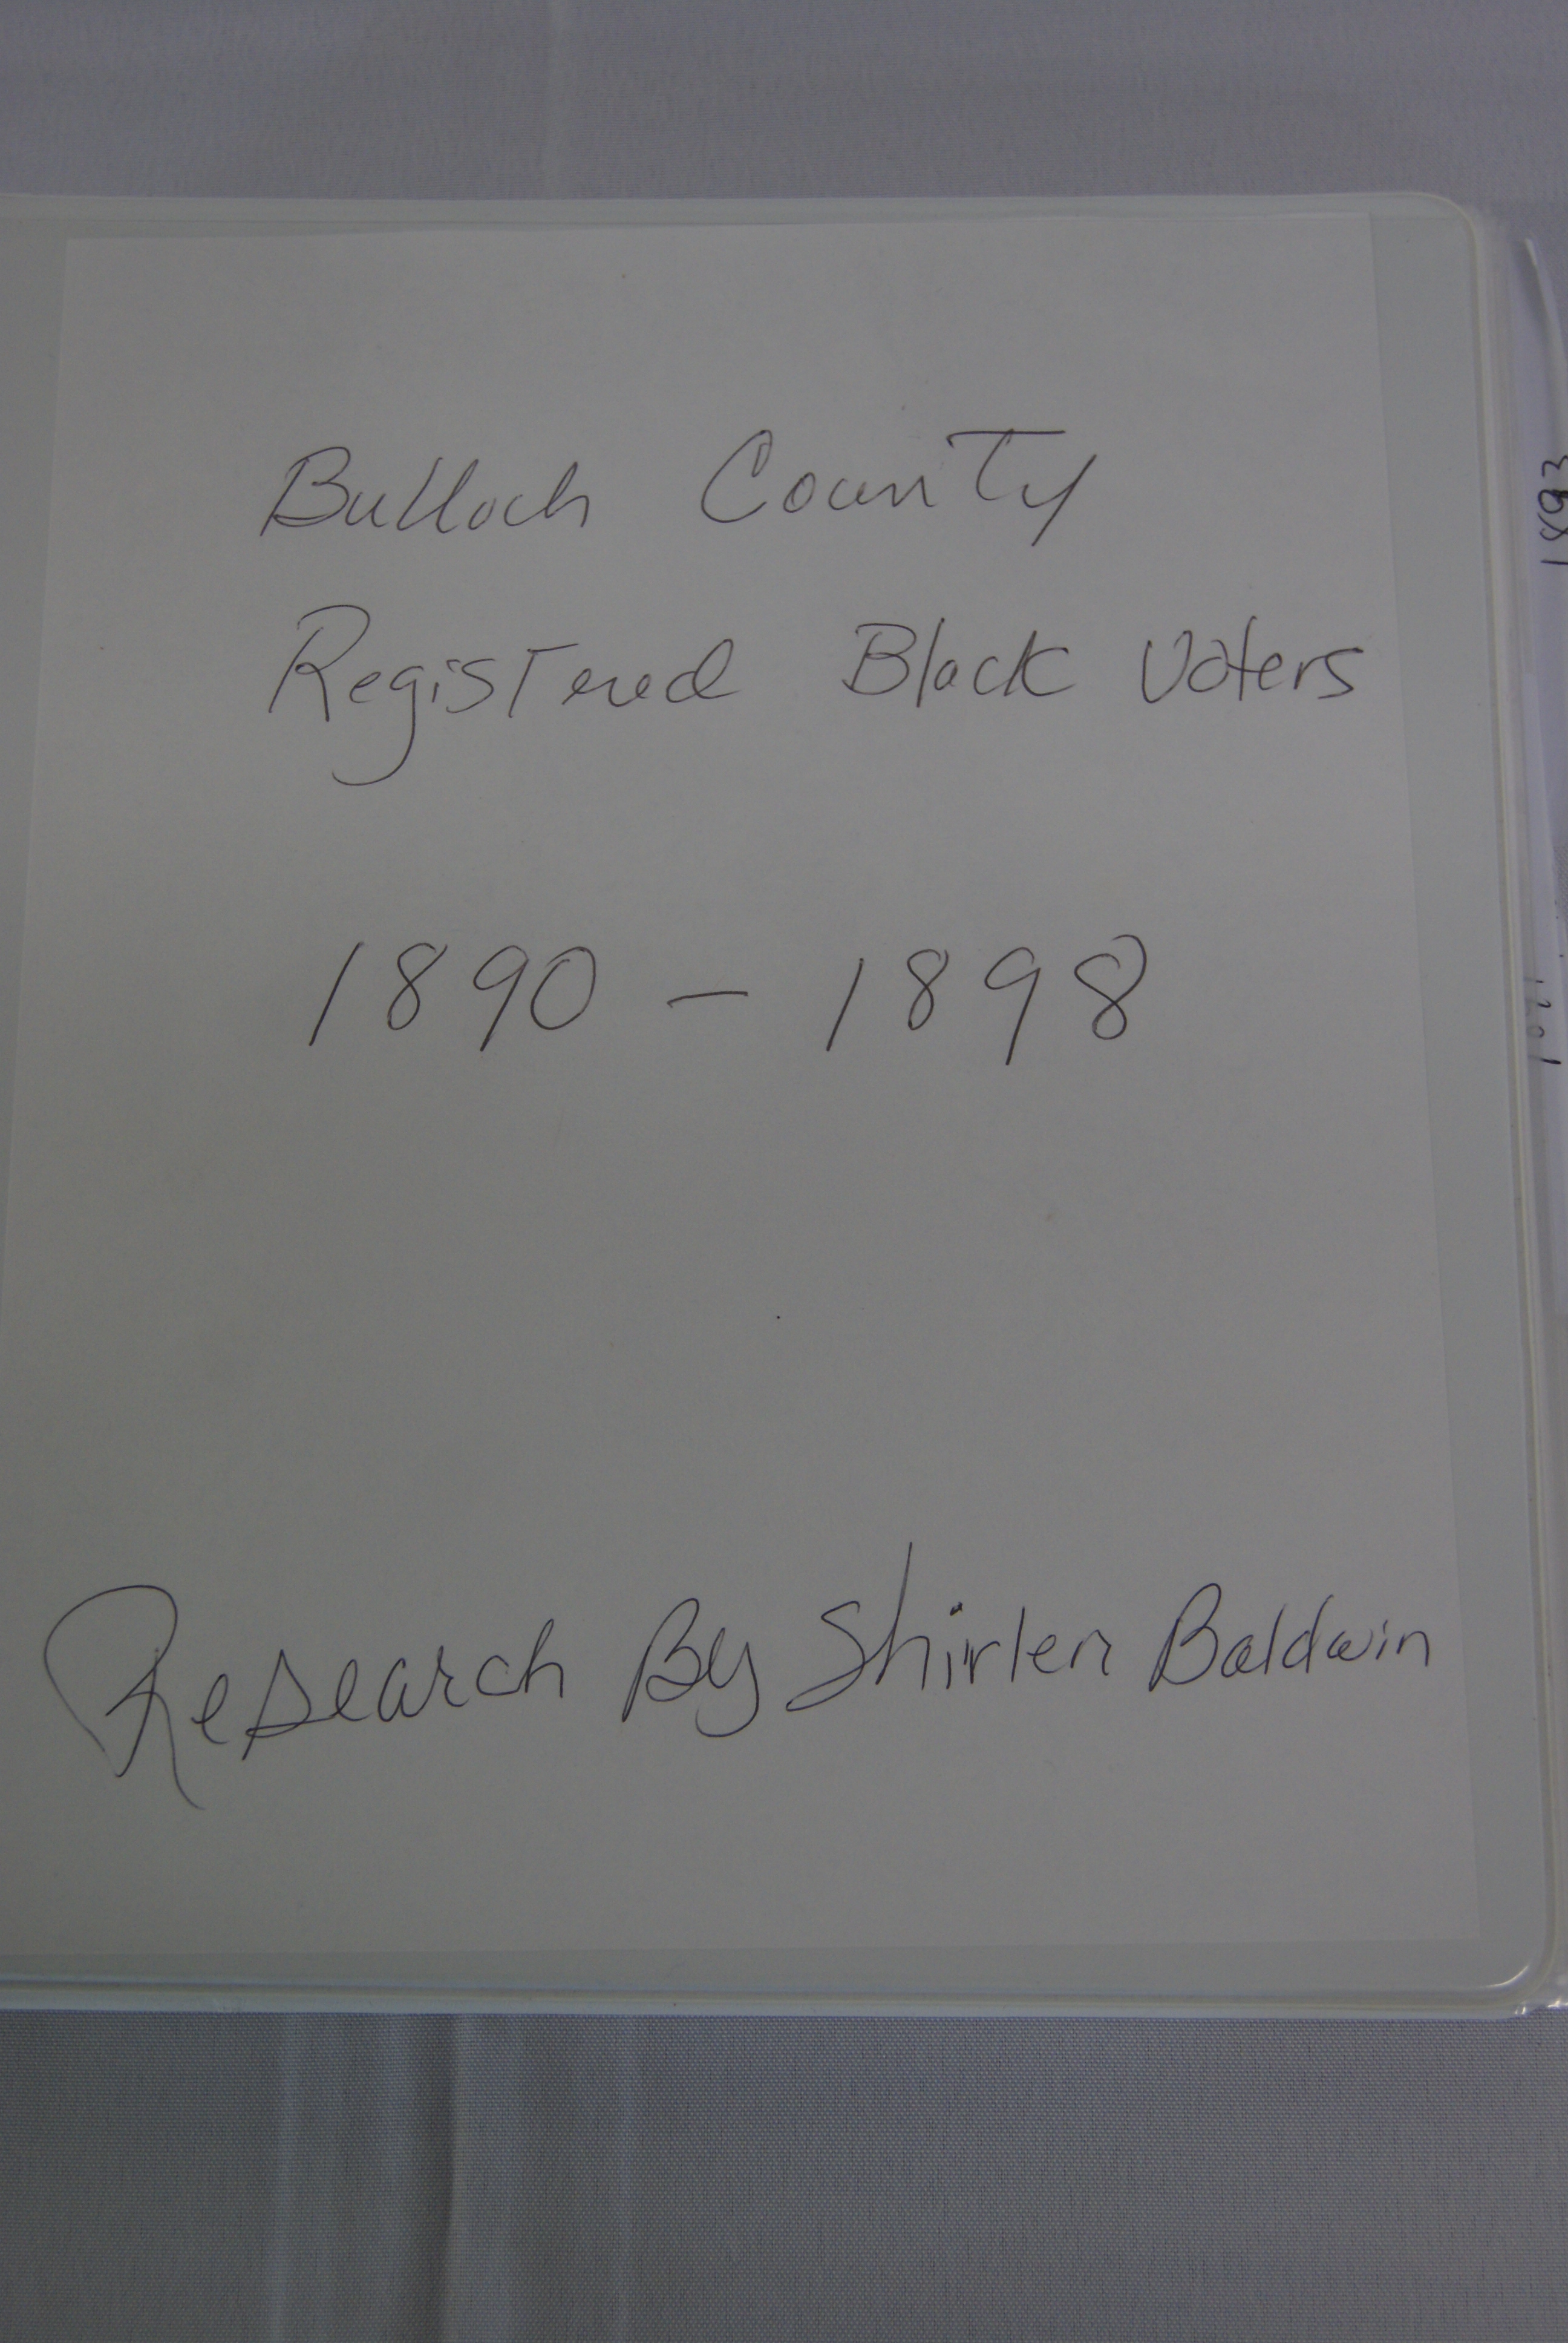 Bulloch County
Registered Black Voters
1890 - 1898
Research By Shirlen Baldwin
1893